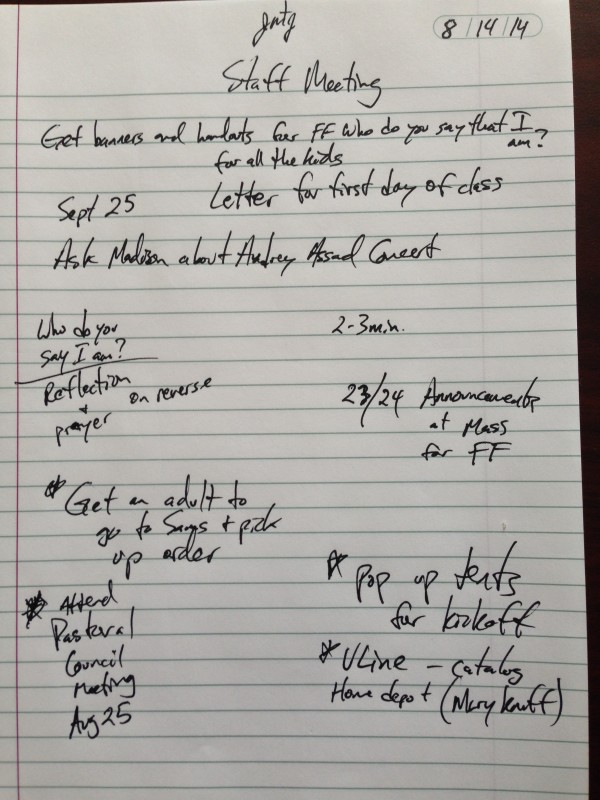 8/14/14
Staff Meeting
Get banners and handouts for FF Who do you say that I am?
for all the kids
Sept 25
Letter for first day of class
Ask Madison about Audrey Assad Concert
Who do you
say I am?
Reflection
+
prayer
on reverse
2-3 min.
23/24 Announcements
at Mass
for FF
* Get an adult to
go to Sams + pick
up order
* Attend
Pastoral
Council
Meeting
Aug 25
* Pop up tents
for kickoff
* ULine - catalog
Home depot (Mary Knuff)